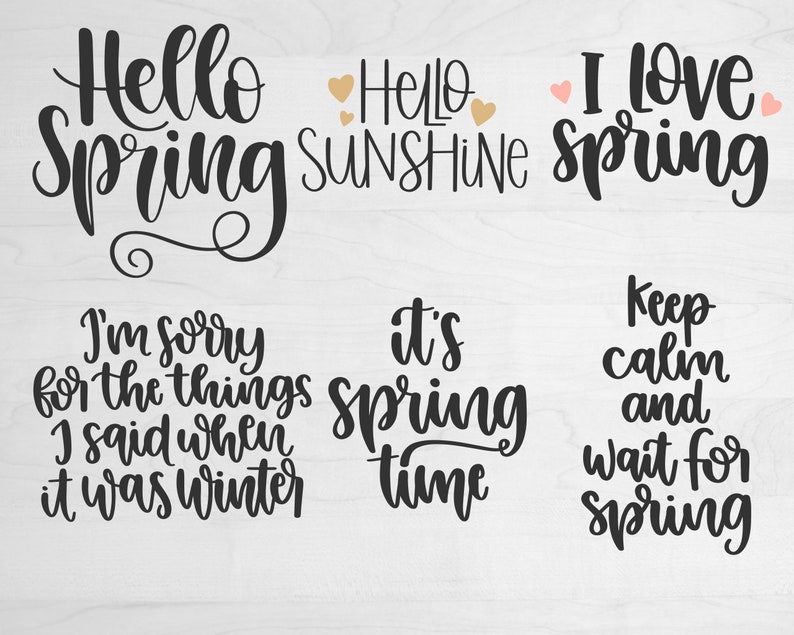 Hello
Spring
Hello
Sunshine
I love
spring
I'm sorry
for the things
I said when
it was winter
it's
spring
time
Keep
calm
and
wait for
spring